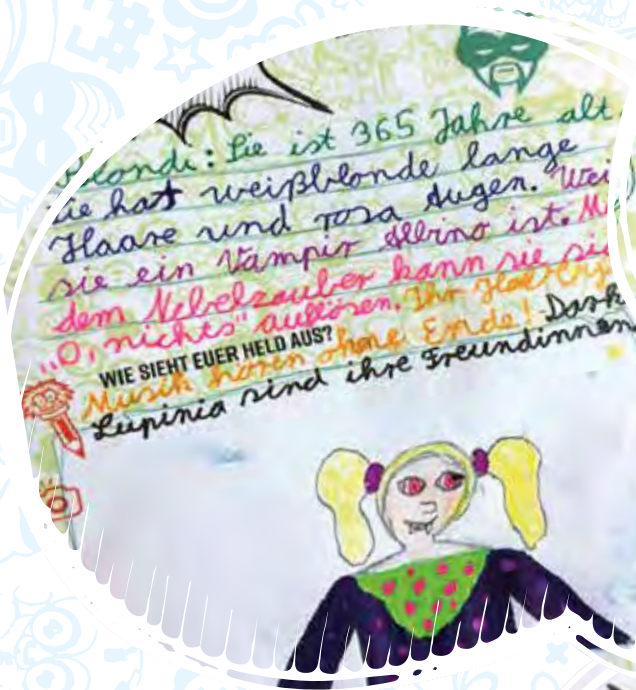 Blondi: Sie ist 365 Jahre alt
Sie hat weißblonde lange
Haare und rosa Augen. Wei
sie ein Vampir Albino ist. M
dem Nebelzauber kann sie si
"O, nichts" auflösen. Ihr
WIE SIEHT EUER HELD AUS?
Musik hören ohne Ende! Dark
Lupinia sind ihre Freundinnen